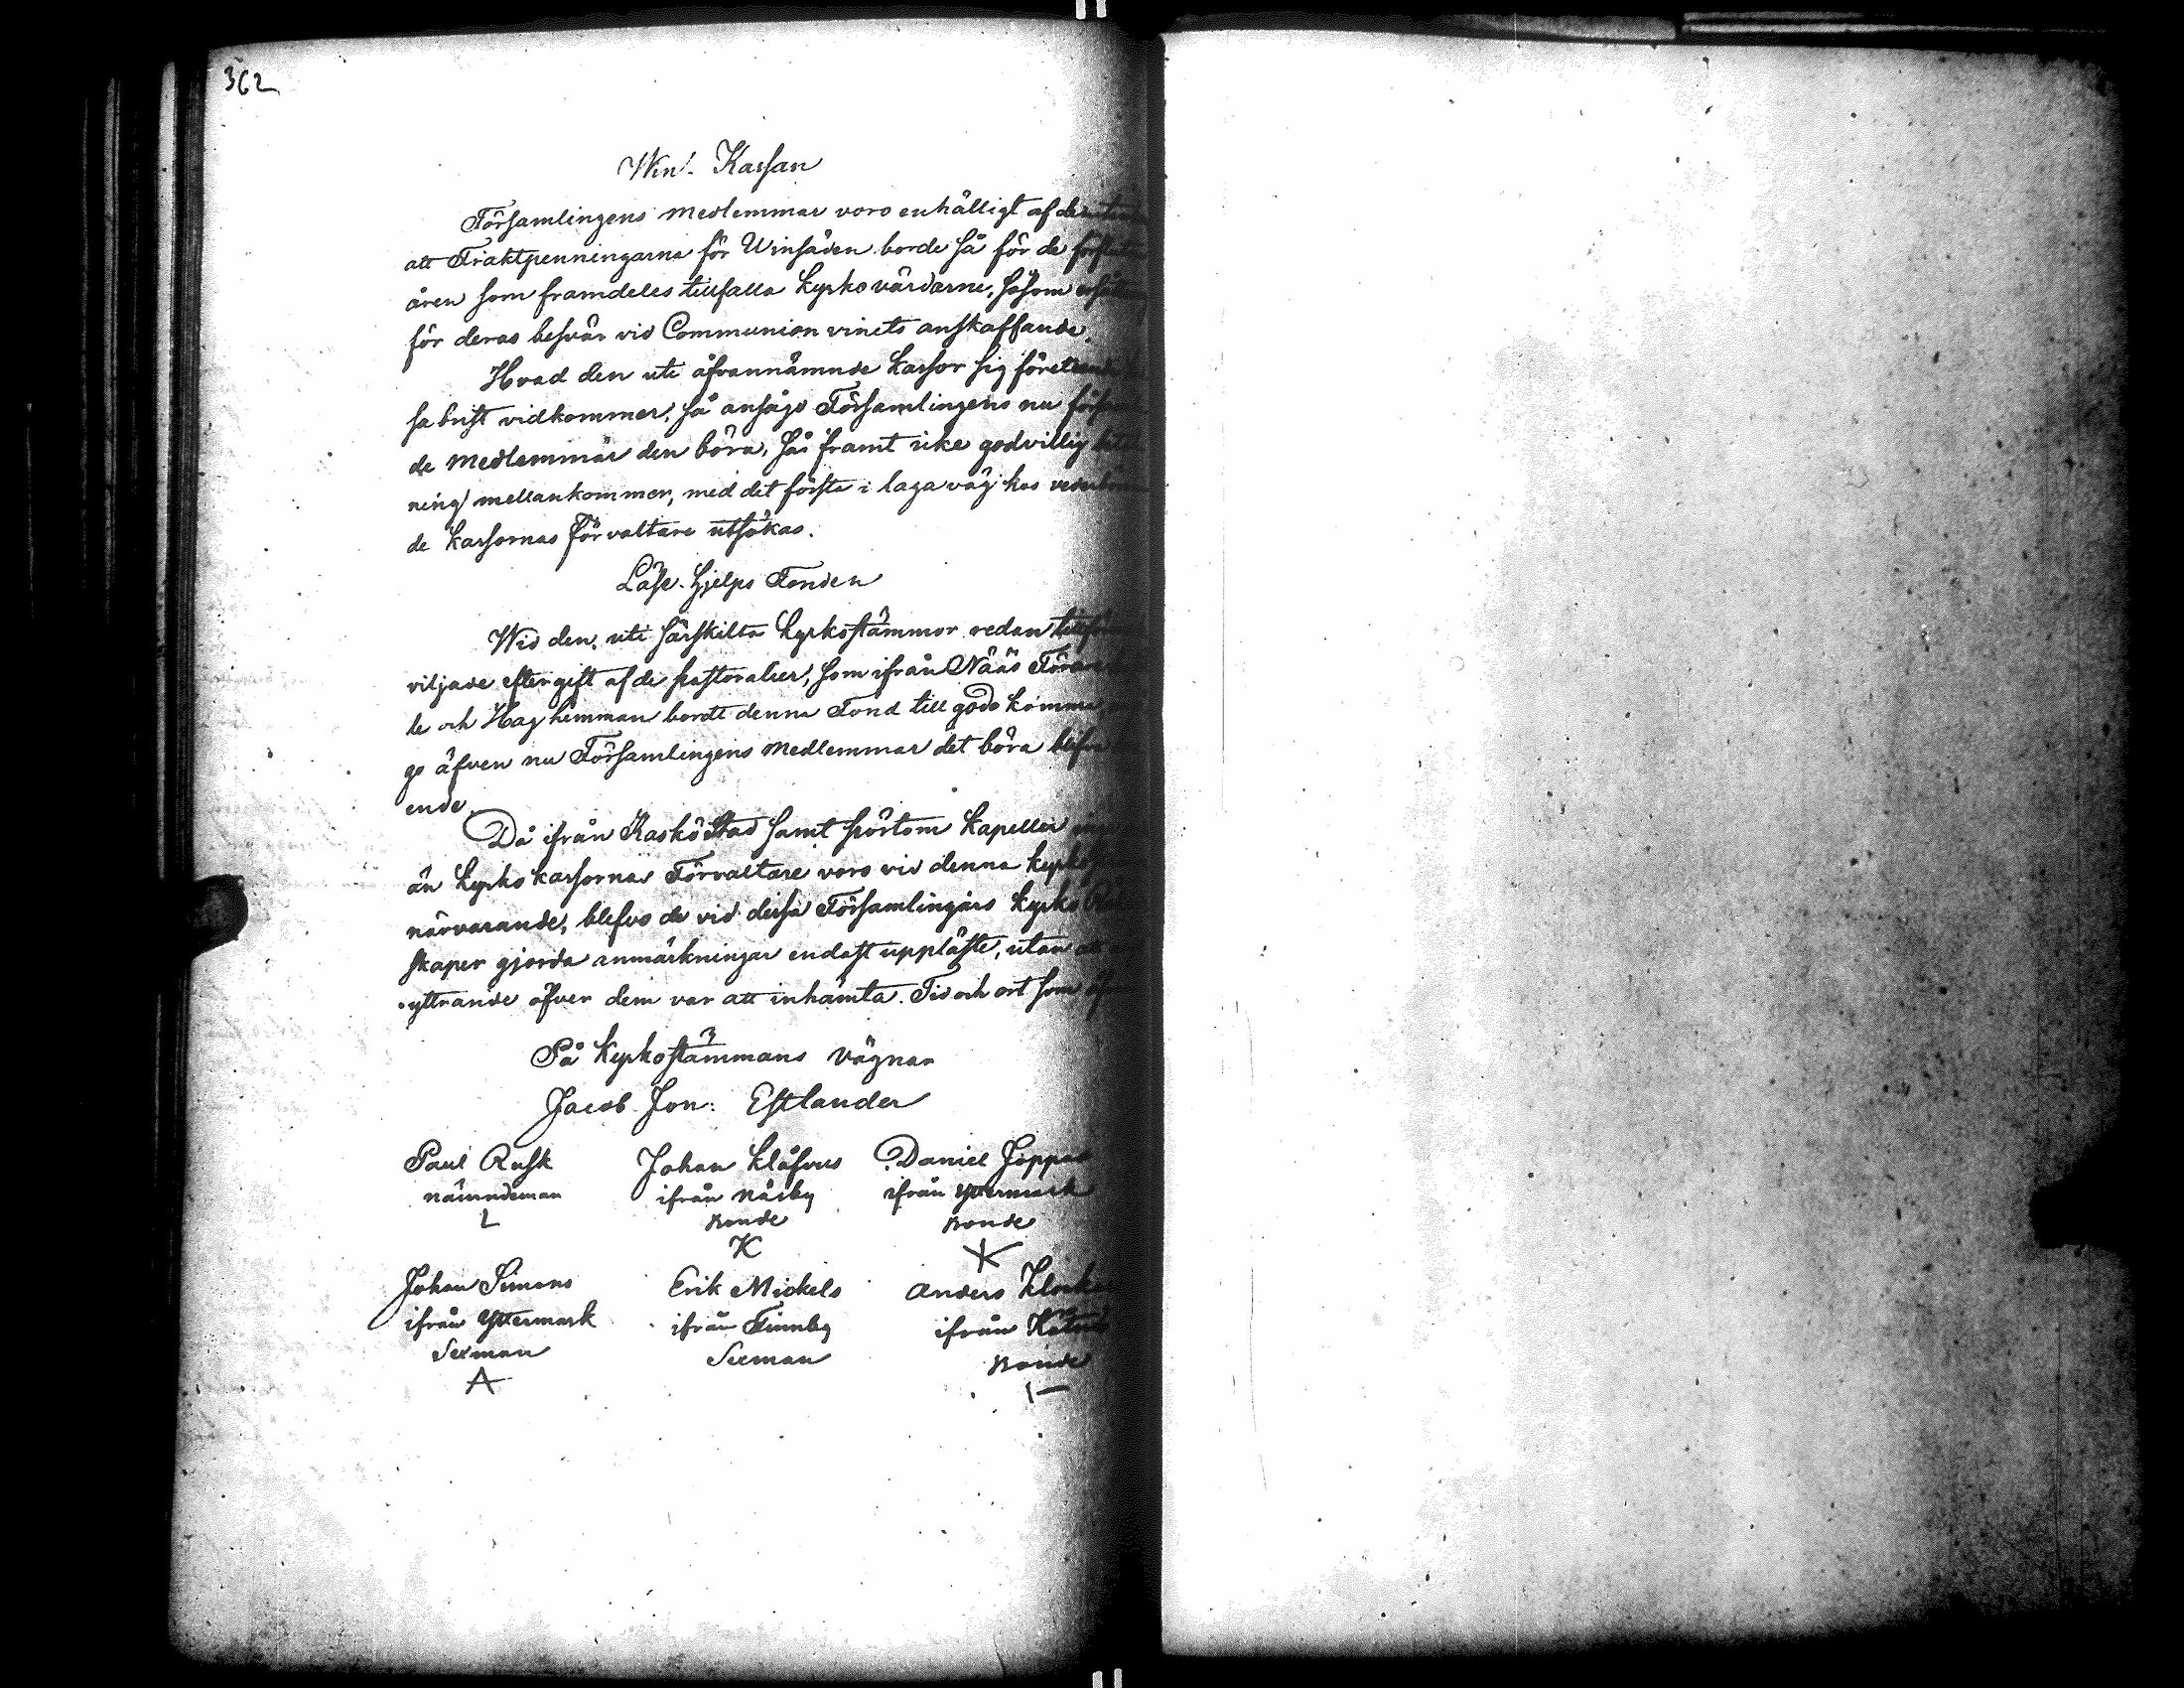 362
Win-Kassan
Församlingens medlemmar voro enhälligt af den
att Fraktpenningarna för Winsäden borde så för de förflutna
åren som framdeles tillfalla kyrkovärdarne, såsom
för deras besvär vid Communion vinets anskaffande.
Hvad den uti åfvannämnde kassor sig företeende
sa brist vidkommer, så ansågo Församlingens nu försam
de medlemmar den böra, så framt icke godvillig betal
ning mellankommer, med det första i laga väg hos vederböran
de kassornas förvaltare utsökas.
Läse-hjelps Fonden
Wid den, uti särskilta kyrkostämmor redan
viljade eftergift af de pastoralier, som ifrån Nääs
le och Hag hemman bordt denna Fond till godo komma
go äfven nu Församlingens medlemmar det böra blifva
ende.
Då ifrån Kaskö Stad samt Pörtom kapeller
än kyrko kassornas Förvaltare voro vid denna
närvarande, blefvo de vid dessa Församlingars kyrko
skaper gjorda anmärkningar endast uppläste, utan att
yttrande öfver dem var att inhämta. Tid och ort som
På kyrkostämmans vägnar
Jacob Jon: Estlander
Paul Rusk Johan Klåfvus Daniel Joppas
nämndeman ifrån Näsby ifrån Yttermark
L Bonde Bonde
K
Johan Simons Erik Mickels Anders
ifrån Yttermark ifrån Finnby ifrån
Sexman Sexman Bonde
A